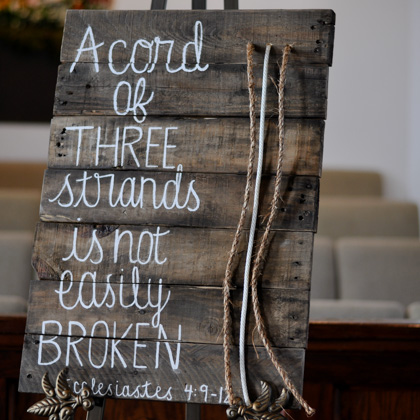 A cord
Of
THREE
strands
is not
easily
BROKEN
Ecclesiastes 4:9-1